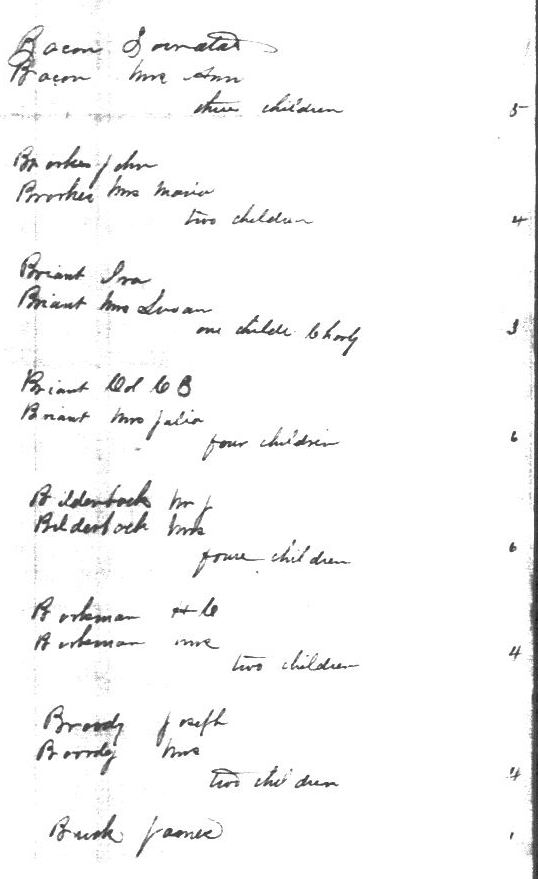 Bacon
Bacon Mrs Ann
three children 5
Brorkes John
Brorkes Mrs Maria
two children 4
Briant Ira
Briant Mrs Susan
one childe Chorly 3
Briant Col C B
Briant Mrs Julia
four children 6
Bilderback Mr J
Bilderback Mrs
foure children 6
Borkman H C
Borkman Mrs
two children 4
Broody Joseph
Broody Mrs
two children 4
James 1